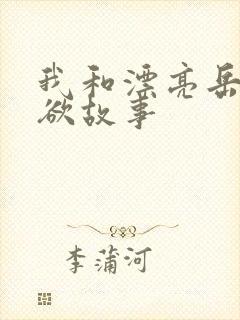 我和漂亮岳
欲故事
李蒲河